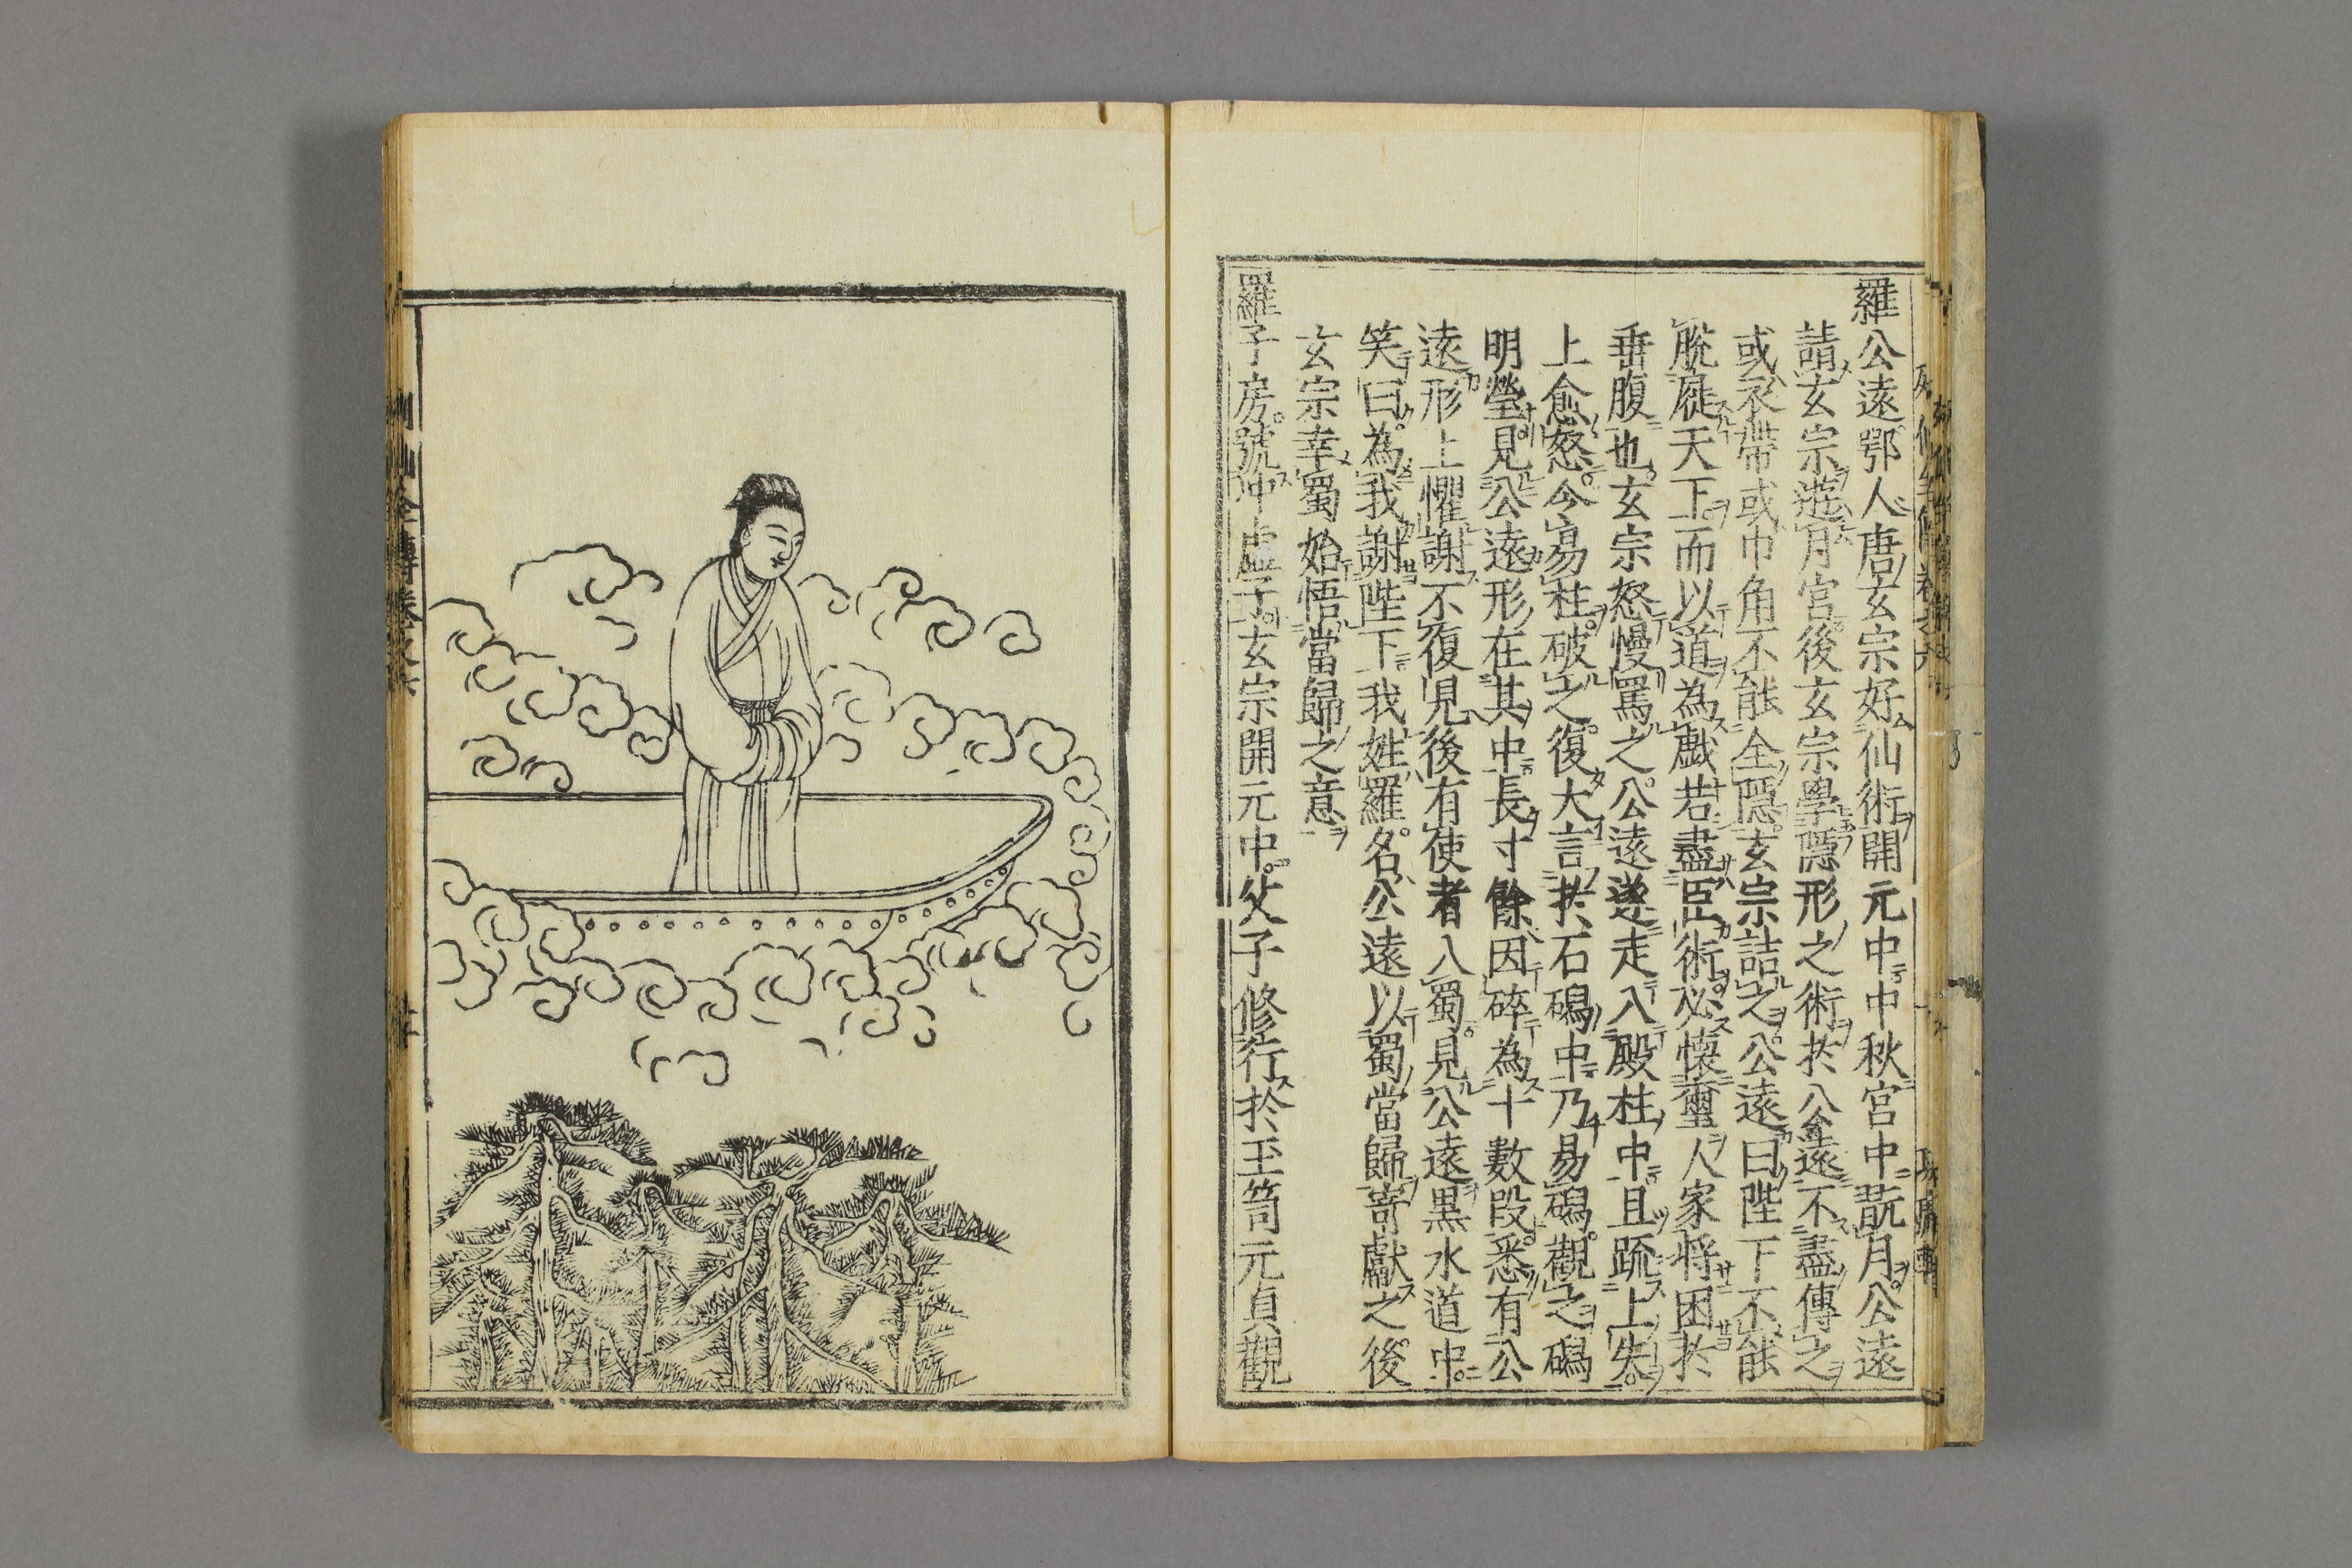 羅公遠鄂人唐玄宗好仙術開元中中秋宮中翫月公遠
請玄宗遊月宮後玄宗學隱形之術於公遠不盡傳之
或衣帶或巾角不能全隱玄宗詰之公遠曰陛下不能
脫屣天下而以道為戲若盡臣術必懷璽人人家將困於
垂腹也玄宗怒慢罵之公遠遂走入殿柱中且疏上失
上愈怒令易柱破之復大言於石磶中乃易磶觀之磶
明瑩見公遠形在其中長寸餘因碎為十數段悉有公
遠形上懼謝不復見後有使者入蜀見公遠黑水道中
笑曰為我謝陛下我姓羅名公遠以蜀當歸寄獻之後
玄宗幸蜀始悟當歸之意
羅子房號冲虛子玄宗開元中父子修行於玉笥元貞觀
列仙全傳卷之六